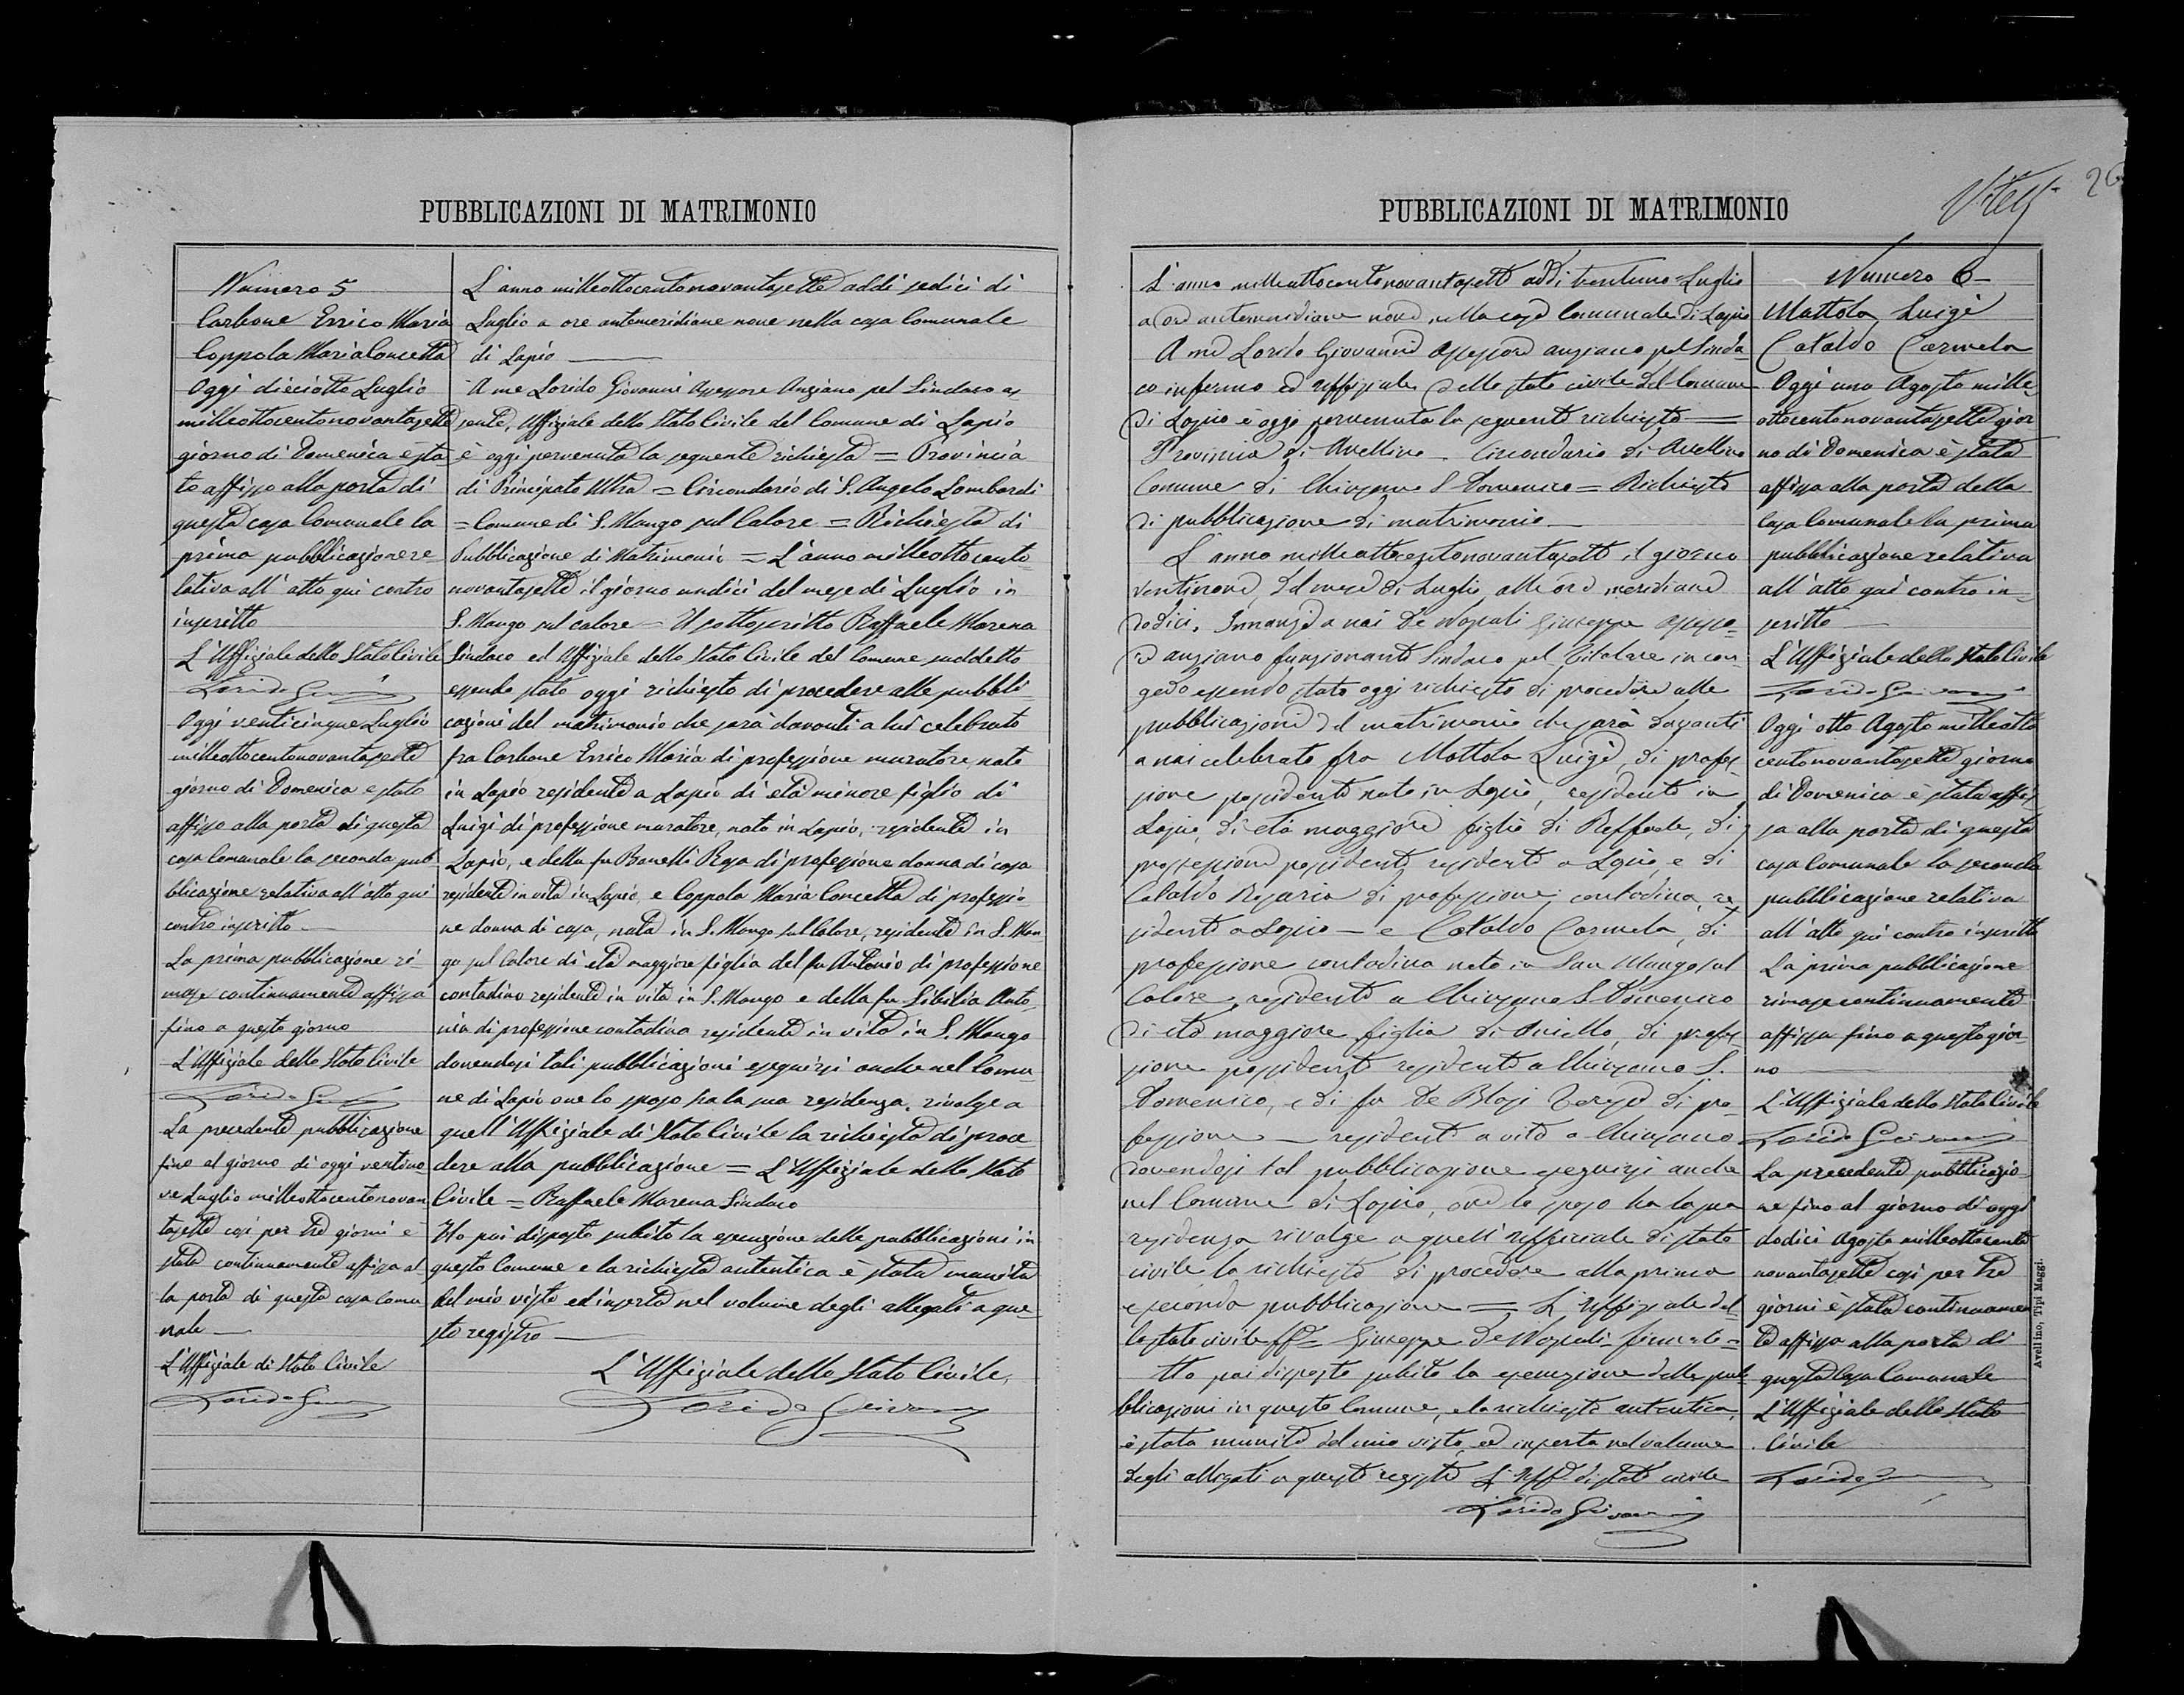 PUBBLICAZIONI DI MATRIMONIO
Numero 5
Carbone Errico Maria
Coppola Maria Concetta
Oggi dieciotto Luglio
milleottocentonovantasette
giorno di Domenica è sta
to affisso alla porta di
questa casa Comunale la
prima pubblicazione re
lativa all'atto qui contro
inscritto
L'Uffiziale dello Stato Civile
Lorido Giovanni
Oggi venticinque Luglio
milleottocentonovantasette
giorno di Domenica e stato
affisso alla porta di questa
casa Comunale la seconda pub
blicazione relativa all'atto qui
contro inscritto
La prima pubblicazione ri
mase continuamente affissa
fino a questo giorno
L'Uffiziale dello Stato Civile
Lorido Giovanni
La precedente pubblicazione
fino al giorno di oggi ventino
ve Luglio milleottocentonovan
tasette così per tre giorni è
stata continuamente affissa al
la porta di questa casa Comu
nale
L'Uffiziale di Stato Civile
Lorido Giovanni
L'anno milleottocentonovantasette addi sedici di
Luglio a ore antemeridiane nove nella casa Comunale
di Lapio
A me Lorido Giovanni Assessore Anziano pel Sindaco as
sente, Uffiziale dello Stato Civile del Comune di Lapio
è oggi pervenuta la seguente richiesta = Provincia
di Principato Ultra = Circondario di S. Angelo Lombardi
= Comune di S. Mango sul Calore = Richiesta di
Pubblicazione di Matrimonio = L'anno milleottocento
novantasette il giorno undici del mese di Luglio in
S. Mango sul calore = Il sottoscritto Raffaele Marena
Sindaco ed Uffiziale dello Stato Civile del Comune suddetto
essendo stato oggi richiesto di procedere alle pubbli
cazioni del matrimonio che sarà davanti a lui celebrato
fra Carbone Errico Maria di professione muratore, nato
in Lapio residente a Lapio di età minore figlio di
Luigi di professione muratore, nato in Lapio, residente in
Lapio, e della fu Bonelli Rosa di professione donna di casa
residente in vita in Lapio, e Coppola Maria Concetta di professio
ne donna di casa, nata in S. Mango sul Calore, residente in S. Man
go sul Calore di età maggiore figlia del fu Antonio di professione
contadino residente in vita in S. Mango e della fu Sibilia Anto
nia di professione contadina residente in vita in S. Mango
dovendosi tali pubblicazioni eseguirsi anche nel Comu
ne di Lapio ove lo sposo ha la sua residenza, rivolge a
quell'Uffiziale di Stato Civile la richiesta di proce
dere alla pubblicazione = L'Uffiziale dello Stato
Civile = Raffaele Marena Sindaco
Ho poi disposto subito la esecuzione delle pubblicazioni in
questo Comune e la richiesta autentica è stata munita
del mio visto ed inserta nel volume degli allegati a que
sto registro
L'Uffiziale dello Stato Civile,
Lorido Giovanni
26
PUBBLICAZIONI DI MATRIMONIO
L'anno milleottocentonovantasette addi trentuno Luglio
a ore antemeridiane nove nella casa Comunale di Lapio
A me Lorido Giovanni Assessore anziano pel Sinda
co infermo ed uffiziale dello stato civile del Comune
di Lapio è oggi pervenuta la seguente richiesta =
Provincia di Avellino – Circondario di Avellino
Comune di Chiusano S. Domenico = Richiesta
di pubblicazione di matrimonio
L'anno milleottocentonovantasette il giorno
ventinove del mese di Luglio, alle ore meridiane
dodici. Innanzi a noi De Napoli Giuseppe assesso
re anziano funzionante Sindaco pel titolare in con
gedo essendo stato oggi richiesto di procedere alle
pubblicazioni del matrimonio che sarà davanti
a noi celebrato fra Mottola Luigi, di profes
sione possidente nato in Lapio, residente in
Lapio, di età maggiore figlio di Raffaele, di
professione possidente residente a Lapio, e di
Cataldo Rosaria di professione contadina, re
sidente a Lapio – e Cataldo Carmela, di
professione contadina nata in San Mango sul
Calore residente a Chiusano S. Domenico
di età maggiore figlia di Aniello, di profes
sione possidente residente a Chiusano S.
Domenico, e di fu De Blasi Teresa di pro
fessione — residente a vita a Chiusano
dovendosi tal pubblicazione eseguirsi anche
nel Comune di Lapio, ove lo sposo ha la sua
residenza rivolge a quell'ufficiale di stato
civile la richiesta di procedere alla prima
e seconda pubblicazione = L'Uffiziale del
lo stato civile ff. Giuseppe De Napoli firmato =
Ho poi disposto subito la esecuzione delle pub
blicazioni in questo Comune, e la richiesta autentica,
è stata munita del mio visto, ed inserta nel volume
degli allegati a questo registro L'Uff. di stato civile
Lorido Giovanni
Numero 6
Mottola Luigi
Cataldo Carmela
Oggi uno Agosto mille
ottocentonovantasette gior
no di Domenica è stata
affissa alla porta della
Casa Comunale la prima
pubblicazione relativa
all'atto qui contro in
scritto
L'Uffiziale dello Stato Civile
Lorido Giovanni
Oggi otto Agosto milleotto
centonovantasette giorno
di Domenica è stata affis
sa alla porta di questa
casa Comunale la seconda
pubblicazione relativa
all'atto qui contro inscritto
La prima pubblicazione
rimase continuamente
affissa fino a questo gior
no
L'Uffiziale dello Stato Civile
Lorido Giovanni
La precedente pubblicazio
ne fino al giorno di oggi
dodici Agosto milleottocento
novantasette così per tre
giorni è stata continuamen
te affissa alla porta di
questa Casa Comunale
L'Uffiziale dello Stato
Civile
Lorido Giovanni
Avellino, Tipi Maggi.